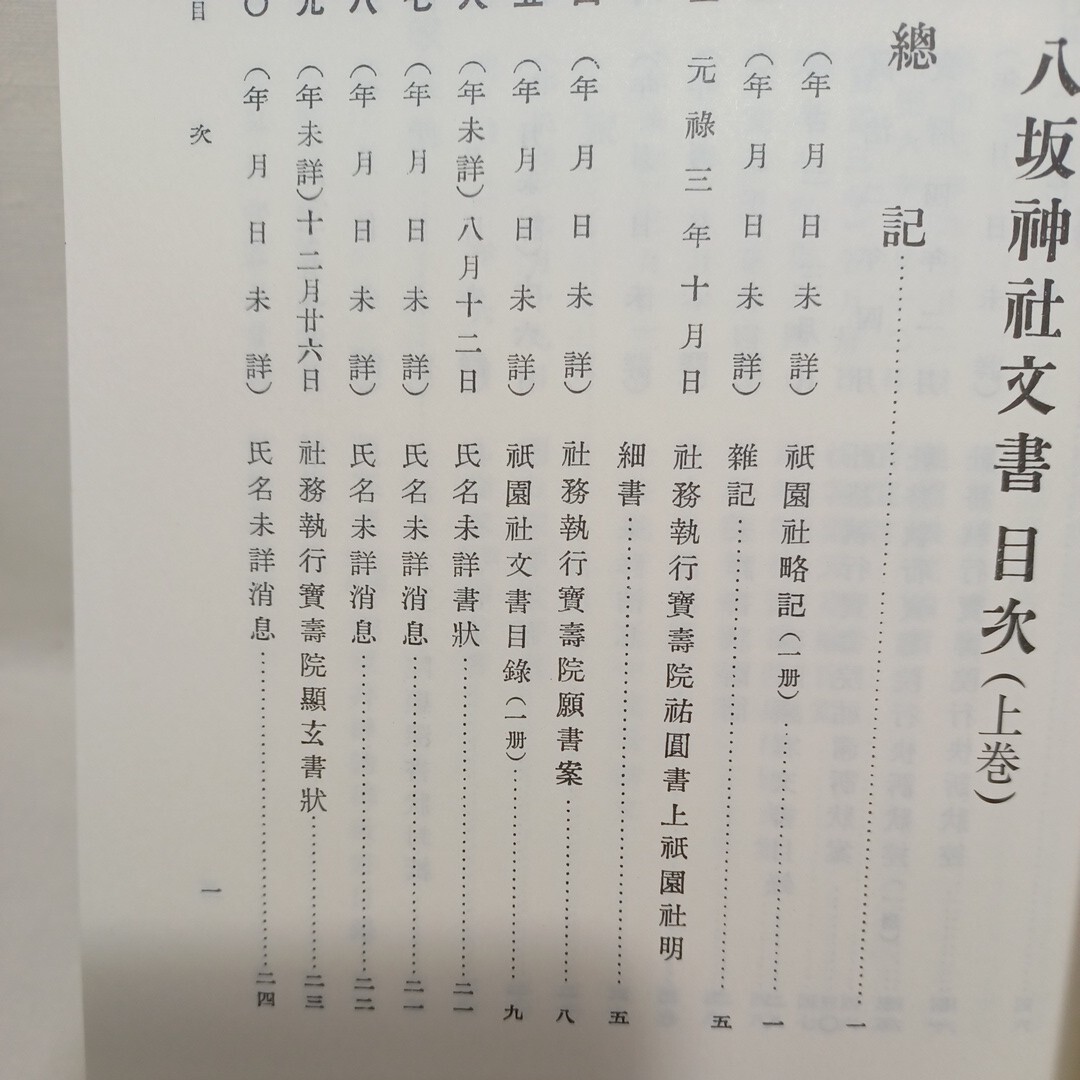 八坂神社文書目次(上巻)
總記……一
(年月日未詳) 祇園社略記(一册)……一
(年月日未詳) 雜記……五
元祿三年十月日 社務執行寶壽院祐圓書上祇園社明
細書……五
四 (年月日未詳) 社務執行寶壽院願書案……八
五 (年月日未詳) 祇園社文書目錄(一册)……九
六 (年未詳)八月十二日 氏名未詳書狀……二一
七 (年月日未詳) 氏名未詳消息……二一
八 (年月日未詳) 氏名未詳消息……二二
九 (年未詳)十二月廿六日 社務執行寶壽院顯玄書狀……二三
一〇 (年月日未詳) 氏名未詳消息……二四
目次
一